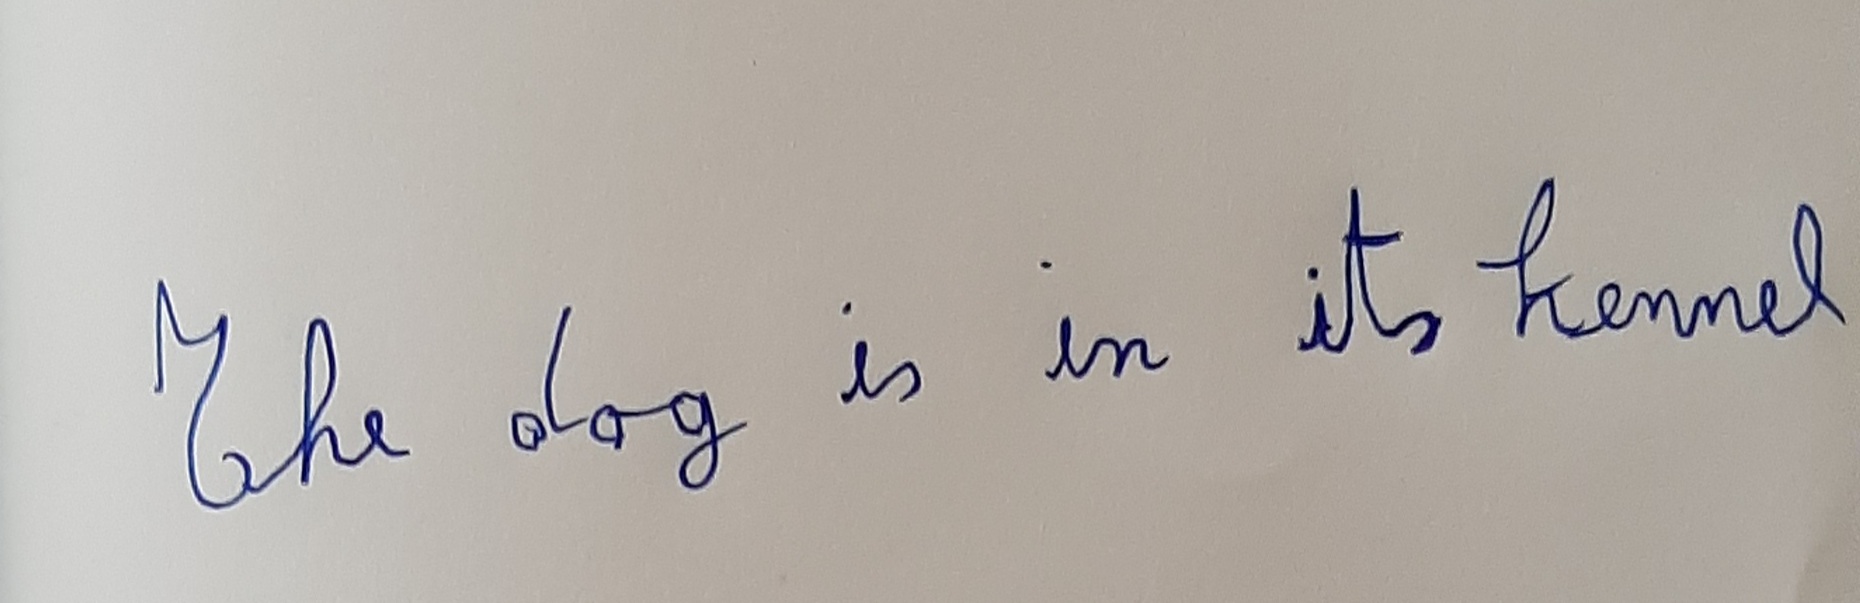 The dog is in its kennel